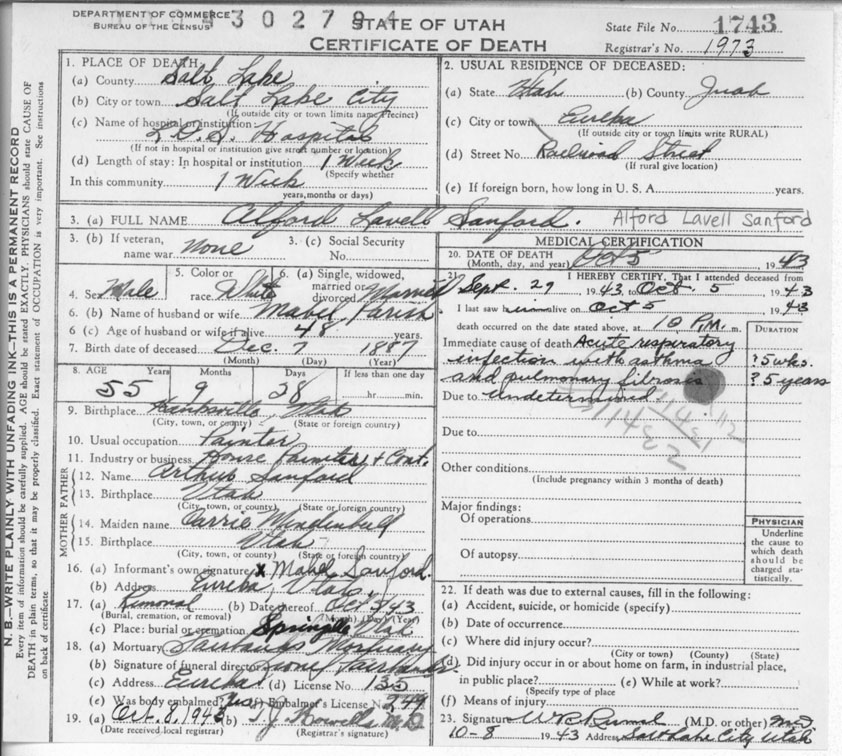 DEPARTMENT OF COMMERCE
BUREAU OF THE CENSUS
STATE OF UTAH
CERTIFICATE OF DEATH
State File No. 1743
Registrar's No. 1973
N. B.—WRITE PLAINLY WITH UNFADING INK—THIS IS A PERMANENT RECORD
Every item of information should be carefully supplied. AGE should be stated EXACTLY. PHYSICIANS should state CAUSE OF
DEATH in plain terms, so that it may be properly classified. Exact statement of OCCUPATION is very important. See instructions
on back of certificate
1. PLACE OF DEATH
(a) County Salt Lake
(b) City or town Salt Lake City
(If outside city or town limits name Precinct)
(c) Name of hospital or institution:
L.D.S. Hospital
(If not in hospital or institution give street number or location)
(d) Length of stay: In hospital or institution 1 Week
(Specify whether
In this community 1 Week
years, months or days)
2. USUAL RESIDENCE OF DECEASED:
(a) State Utah (b) County Juab
(c) City or town Eureka
(If outside city or town limits write RURAL)
(d) Street No. Railroad Street
(If rural give location)
(e) If foreign born, how long in U. S. A. years.
3. (a) FULL NAME Alford Lavell Sanford. Alford Lavell Sanford
3. (b) If veteran, name war None
3. (c) Social Security No.
4. Sex Male
5. Color or race White
6. (a) Single, widowed, married or divorced Married
6. (b) Name of husband or wife Mabel Parish
6. (c) Age of husband or wife if alive 48 years.
7. Birth date of deceased Dec. 7 1887
(Month) (Day) (Year)
8. AGE Years Months Days If less than one day
55 9 28 hr. min.
9. Birthplace Huntsville, Utah
(City, town, or county) (State or foreign country)
10. Usual occupation Painter
11. Industry or business House Painter & Cont.
FATHER
12. Name Arthur Sanford
13. Birthplace Utah
(City, town, or county) (State or foreign country)
MOTHER
14. Maiden name Carrie
15. Birthplace Utah
(City, town, or county) (State or foreign country)
16. (a) Informant's own signature x Mabel Sanford.
(b) Address Eureka, Utah.
17. (a) Removal (b) Date thereof Oct 8 43
(Burial, cremation, or removal) (Month) (Day) (Year)
(c) Place: burial or cremation Utah
18. (a) Mortuary Fairbanks Mortuary
(b) Signature of funeral director Fairbanks
(c) Address Eureka (d) License No. 135
(e) Was body embalmed? Yes (f) Embalmer's License No. 244
19. (a) Oct. 8, 1943 (b) T. J. Howells M.D.
(Date received local registrar) (Registrar's signature)
MEDICAL CERTIFICATION
20. DATE OF DEATH
(Month, day, and year) Oct 5 1943
21. I HEREBY CERTIFY, That I attended deceased from
Sept. 29 1943, to Oct. 5 1943
I last saw alive on Oct 5 1943
death occurred on the date stated above, at 10 P.M. m.
DURATION
Immediate cause of death Acute respiratory
infection with asthma ? 5 wks.
and pulmonary fibrosis ? 5 years
Due to undetermined
Due to
Other conditions
(Include pregnancy within 3 months of death)
Major findings:
Of operations
Of autopsy
PHYSICIAN
Underline
the cause to
which death
should be
charged sta-
tistically.
22. If death was due to external causes, fill in the following:
(a) Accident, suicide, or homicide (specify)
(b) Date of occurrence
(c) Where did injury occur?
(City or town) (County) (State)
(d) Did injury occur in or about home on farm, in industrial place,
in public place? (e) While at work?
(Specify type of place
(f) Means of injury
23. Signature W R Rumel (M.D. or other) MD
10-8 1943 Address Salt Lake City Utah